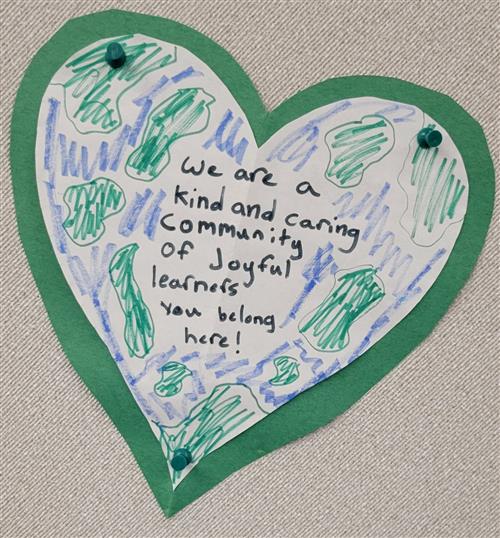 We are a
kind and caring
Community
of Joyful
learners
You belong
here!